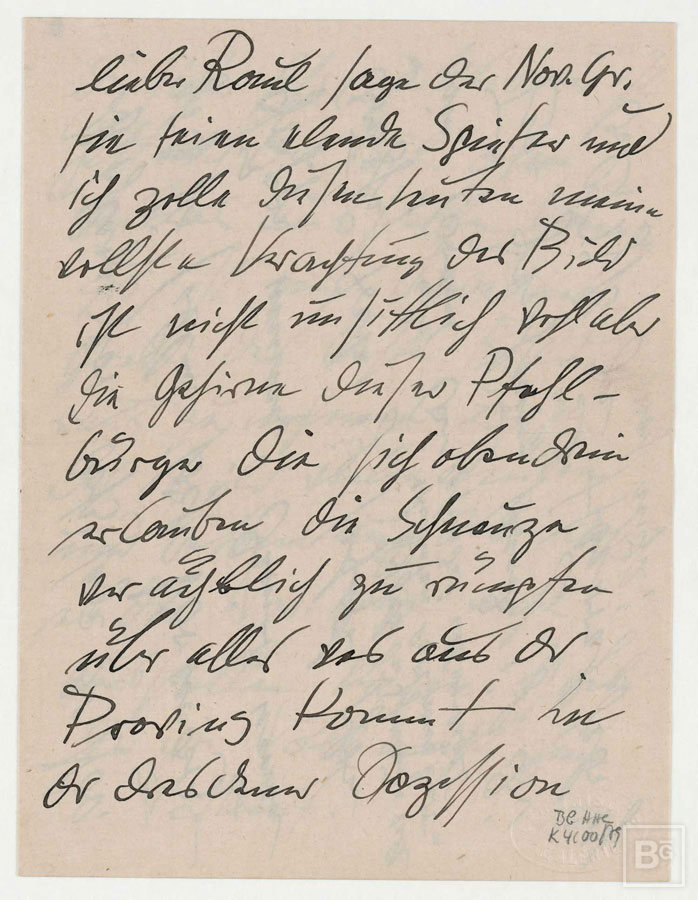 lieber Raoul sage der Nov. Gr.
sie seien elende Spießer und
ich zolle diesen Leuten meine
vollste Verachtung das Bild
ist nicht unsittlich wohl aber
die Gehirne dieser Pfahl-
bürger die sich obendrein
erlauben die Schnauze
verächtlich zu rümpfen
über alles was aus der
Provinz kommt in
der dresdener Sezession
BG HHC
K 4100/79
BG